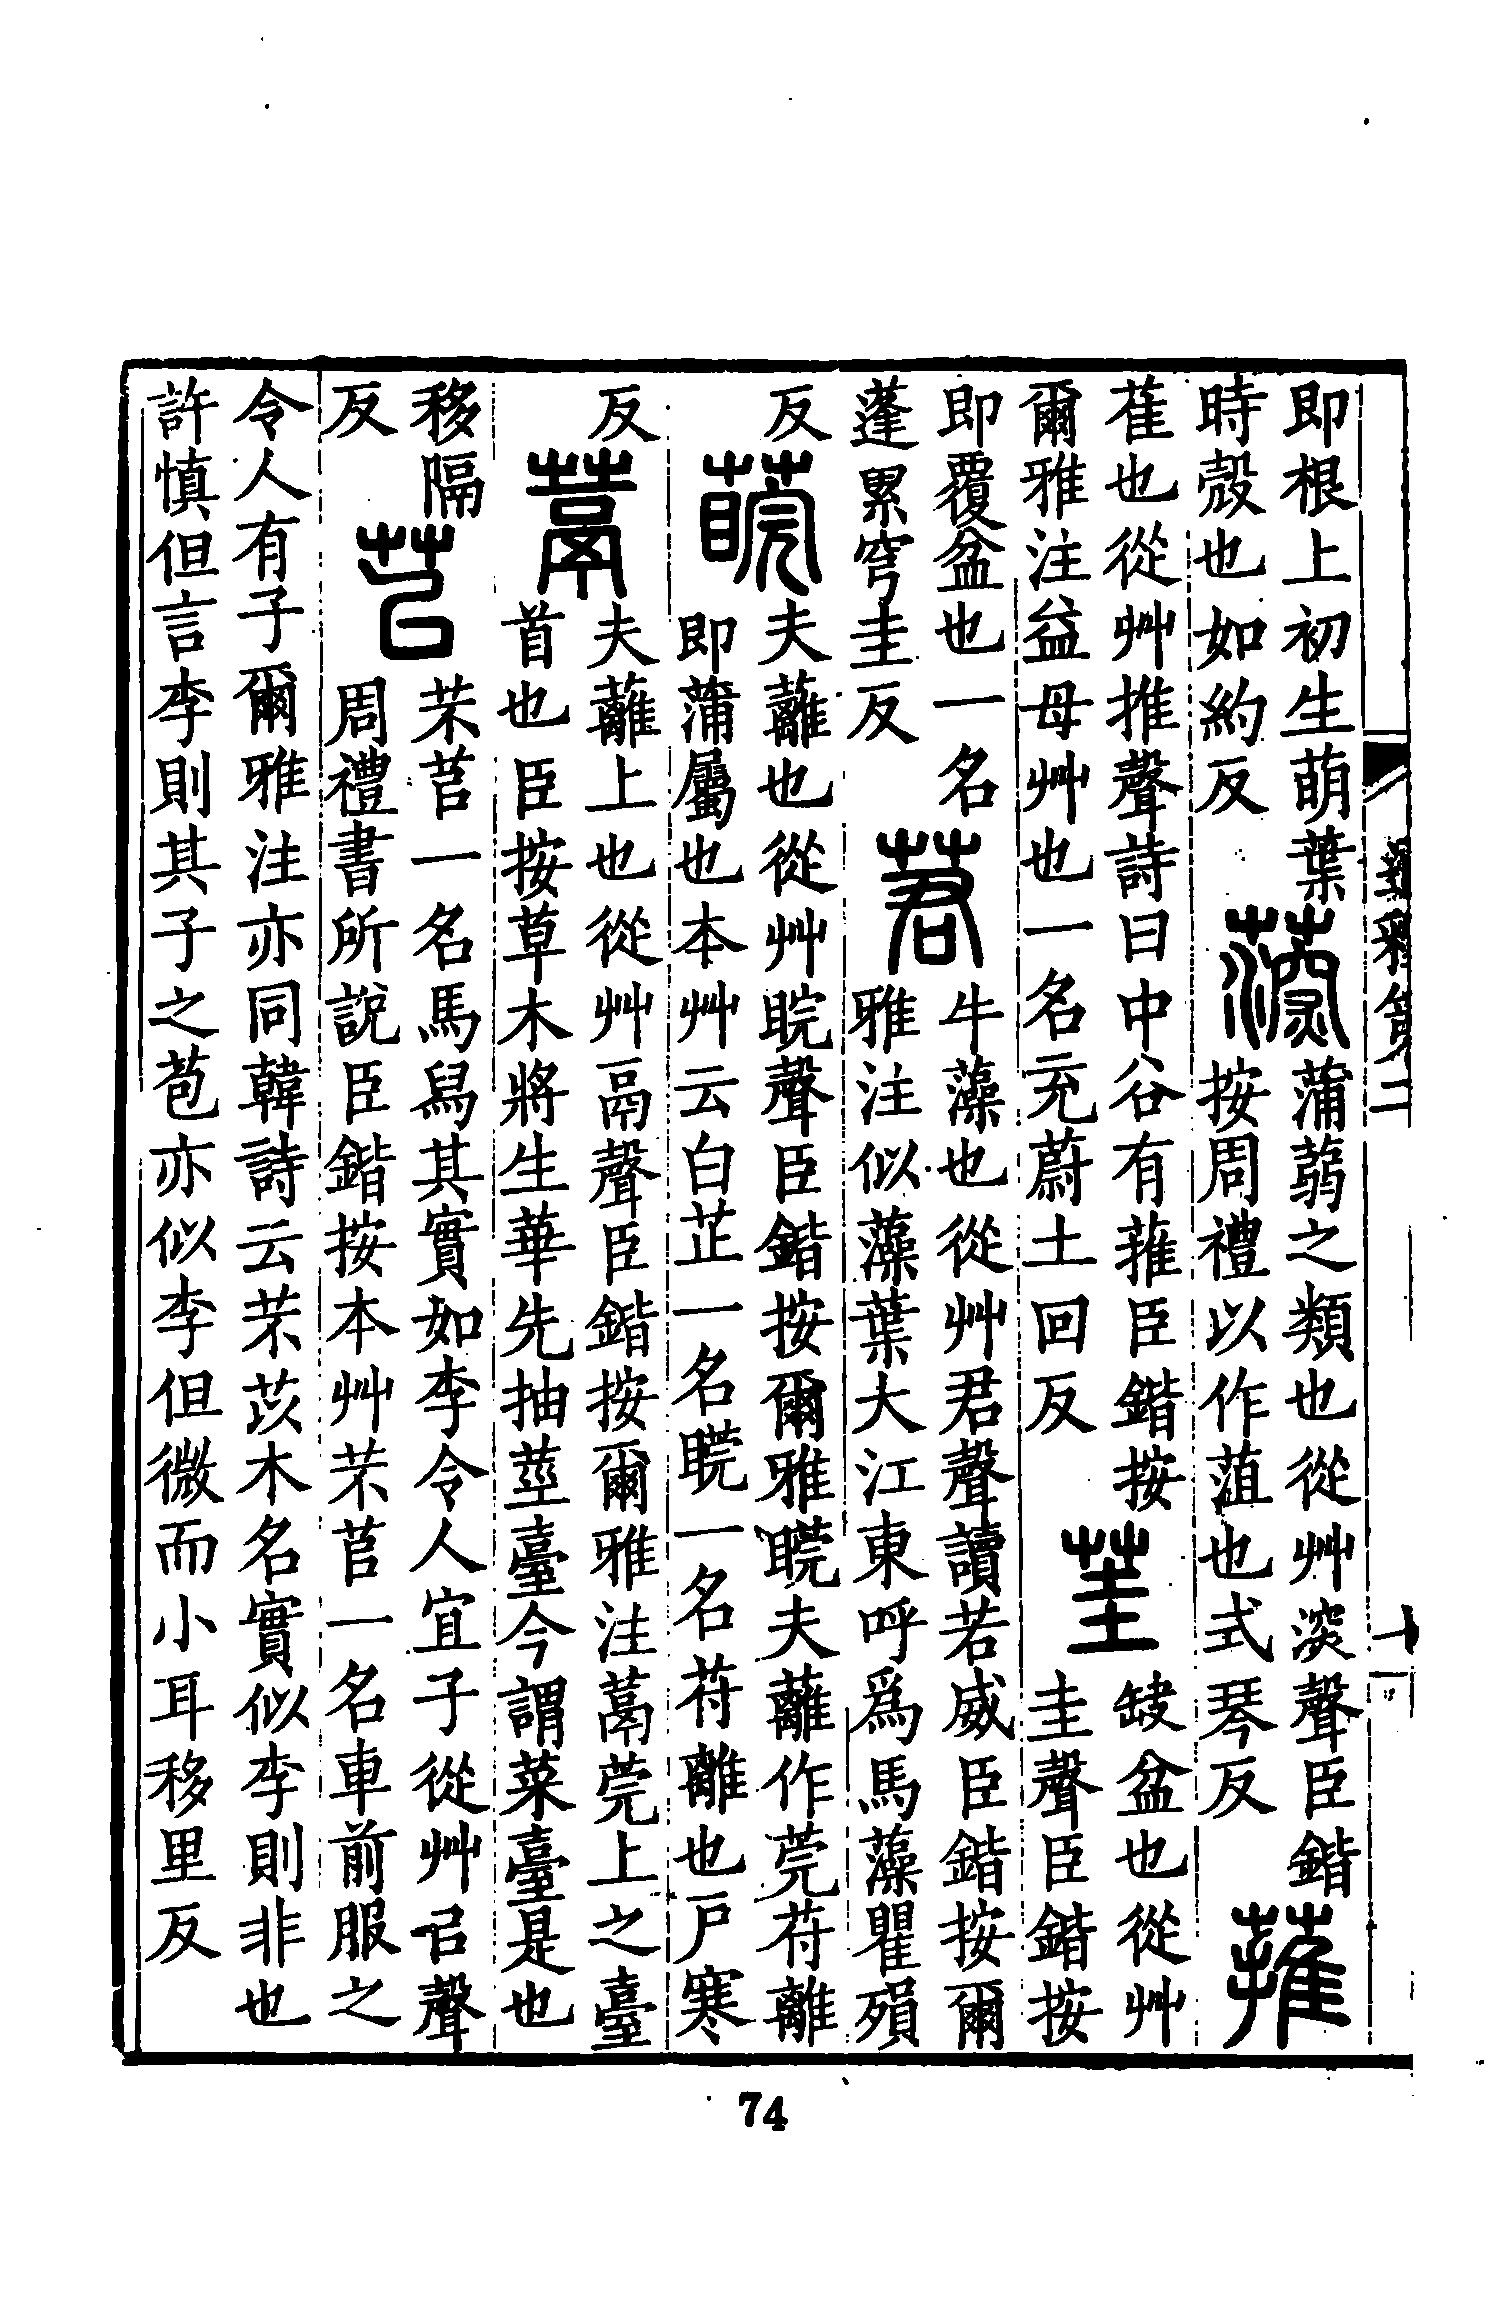 即根上初生萌葉
時殼也如約反
𦸂
蒲蒻之類也從艸深聲臣鍇
按周禮以作菹也式琴反
蓷
萑也從艸推聲詩曰中谷有蓷臣鍇按
爾雅注益母艸也一名充蔚土回反
茥
缺盆也從艸
圭聲臣鍇按
即覆盆也一名
蓬累穹圭反
莙
牛藻也從艸君聲讀若威臣鍇按爾
雅注似藻葉大江東呼爲馬藻瞿殞
反
睆
夫蘺也從艸睆聲臣鍇按爾雅睆夫蘺作莞苻離
即蒲屬也本艸云白芷一名睆一名苻離也戶寒
反
蒚
夫蘺上也從艸鬲聲臣鍇按爾雅注蒚莞上之臺
首也臣按草木將生華先抽莖臺今謂菜臺是也
移隔
反
苢
芣苢一名馬舄其實如李令人宜子從艸㠯聲
周禮書所說臣鍇按本艸芣苢一名車前服之
令人有子爾雅注亦同韓詩云芣苡木名實似李則非也
許慎但言李則其子之苞亦似李但微而小耳移里反
通釋第二
74